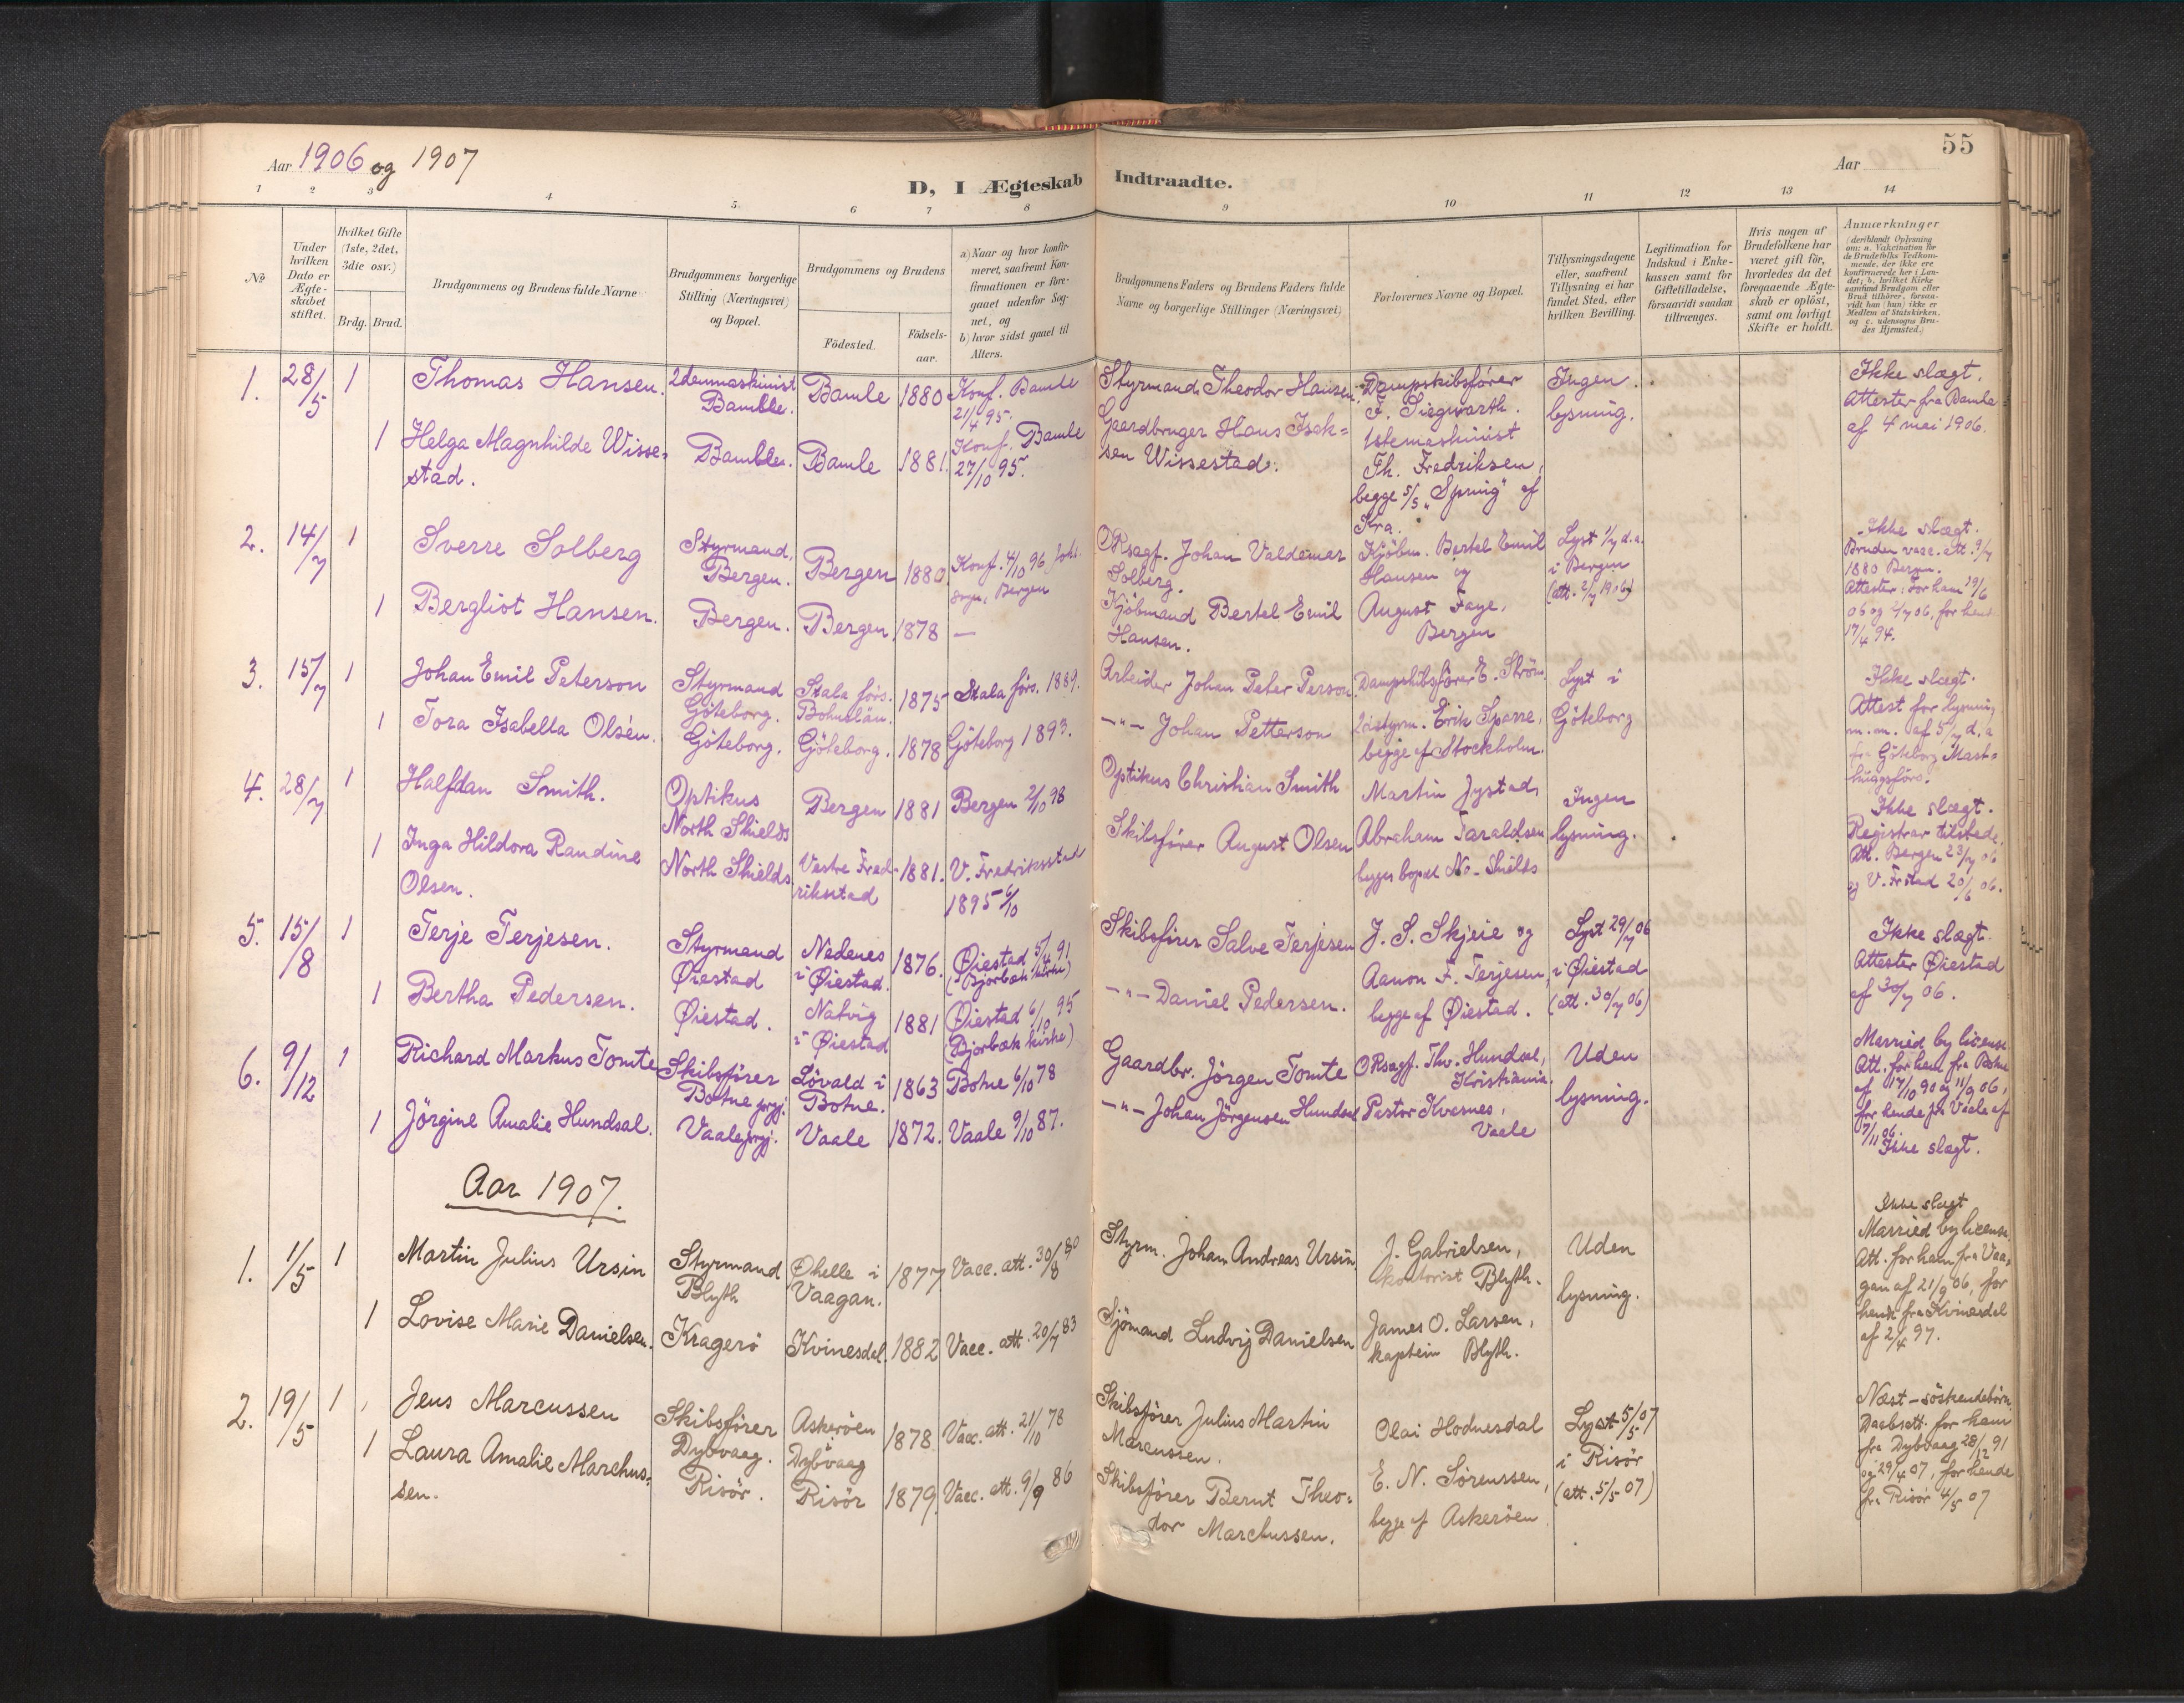 Aar 1906 og 1907
D, I Ægteskab Indtraadte.
Aar
55
1 2 3 4 5 6 7 8 9 10 11 12 13 14
No
Under hvilken Dato er Ægteskabet stiftet.
Hvilket Gifte (1ste, 2det, 3die osv.)
Brdg. Brud.
Brudgommens og Brudens fulde Navne
Brudgommens borgerlige Stilling (Næringsvei) og Bopæl.
Brudgommens og Brudens
Födested.
Födselsaar.
a) Naar og hvor konfirmeret, saafremt Konfirmationen er foregaaet udenfor Sognet, og
b) hvor sidst gaaet til Alters.
Brudgommens Faders og Brudens Faders fulde Navne og borgerlige Stillinger (Næringsvei)
Forlovernes Navne og Bopæl.
Tillysningsdagene eller, saafremt Tillysning ei har fundet Sted, efter hvilken Bevilling.
Legitimation for Indskud i Enkekassen samt for Giftetilladelse, forsaavidt saadan tiltrænges.
Hvis nogen af Brudefolkene har været gift för, hvorledes da det foregaaende Ægteskab er oplöst, samt om lovligt Skifte er holdt.
Anmærkninger
(deriblandt Oplysning om: a. Vakcination for de Brudefolks Vedkommende, der ikke ere konfirmerede her i Landet; b. hvilket Kirkesamfund Brudgom eller Brud tilhörer, forsaavidt han (hun) ikke er Medlem af Statskirken, og c. udensogns Brudes Hjemsted.)
1. 28/5 1 Thomas Hansen. 2denmaskinist Bamble. Bamle 1880 Konf. Bamle 21/4 95. Styrmand Theodor Hansen. Dampskibsfører F. Siegwarth. Ingen lysning. Ikke slægt. Attester fra Bamle af 4 mai 1906.
1 Helga Magnhilde Wissestad. Bamble. Bamle 1881. Konf. Bamle 27/10 95. Gaardbruger Hans Isaksen Wissestad. 1stemaskinist Th. Fredriksen, begge S/S "Spring" af Kra.
2. 14/7 1 Sverre Solberg Styrmand, Bergen. Bergen 1880 Konf. 4/10 96 Joh. sogn, Bergen OKsagf. Johan Valdemar Solberg. Kjöbm. Bertel Emil Hansen og Lyst 1/7 d.a. i Bergen (att. 2/7 1906) Ikke slægt. Bruden vacc. att. 9/7 1880 Bergen. Attester: for ham 29/6 06 og 2/7 06, for hende 17/4 94.
1 Bergliot Hansen. Bergen. Bergen. 1878 — Kjöbmand Bertel Emil Hansen. August Faye, Bergen
3. 15/7 1 Johan Emil Peterson Styrmand Göteborg. Stalaförs. Bohuslän. 1875 Stala förs. 1889. Arbeider Johan Peter Person. Dampskibsfører E. Ström, Lyst i Göteborg Ikke slægt. Attest for lysning m.m. af 5/7 d.a fra Göteborg Masthuggsförs.
1 Tora Isabella Olsén. Göteborg. Göteborg. 1878 Göteborg 1893. —"— Johan Petterson Erik Sparre, begge af Stockholm.
4. 28/7 1 Halfdan Smith. Optikus North Shields Bergen 1881 Bergen 2/10 98 Optikus Christian Smith Martin Jystad, Ingen lysning. Ikke slægt. Registrar tilstede. Att. Bergen 23/7 06 og V. Frstad 20/6 06.
1 Inga Hildora Randine Olsen. North Shields Vestre Fredriksstad 1881. V. Fredriksstad 1895 6/10 Skibsfører August Olsen Abraham Taraldsen begges bopæl No-Shields
5. 15/8 1 Terje Terjesen. Styrmand Øiestad Nedenes i Øiestad. 1876. Øiestad 5/4 91 (Bjorbæk kirke) Skibsfører Salve Terjesen J. S. Skjeie og Lyst 29/7 06 i Øiestad (att. 30/7 06) Ikke slægt. Attester Øiestad af 30/7 06.
1 Bertha Pedersen. Øiestad. Natvig i Øiestad 1881 Øiestad 6/10 95 Bjorbæk kirke) —"— Daniel Pedersen. Aanon F. Terjesen, begge af Øiestad.
6. 9/12 1 Richard Markus Tomte Skibsfører Botne prgj. Lövald i Botne. 1863 Botne 6/10 78 Gaardbr. Jörgen Tomte OKsagf. Thv. Hundsal, Kristiania. Uden lysning. Married by license Att. for ham fra Botne af 17/10 90 og 11/9 06, for hende fra Vaale af 7/11 06. Ikke slægt.
1 Jörgine Amalie Hundsal. Vaale prgj. Vaale 1872. Vaale 9/10 87. —"— Johan Jörgensen Hundsal Pastor Kvasnes, Vaale
Aar 1907.
1. 1/5 1 Martin Julius Ursin Styrmand Blyth Ohelle i Vaagan. 1877 Vacc. att. 30/8 80 Styrm. Johan Andreas Ursin. J. Gabrielsen, kontorist Blyth. Uden lysning. Ikke slægt Married by license Att. for ham fra Vaagan af 21/9 06, for hende fra Kvinesdal af 2/4 97.
1 Lovise Marie Danielsen. Kragerö Kvinesdal. 1882 Vacc. att. 20/7 83 Sjömand Ludvig Danielsen James O. Larsen, kaptein Blyth.
2. 19/5 1 Jens Marcussen Skibsfører Dybvaag. Askerøen Dybvaag 1878. Vacc. att. 21/10 78 Skibsfører Julius Martin Marcussen. Olai Hodnesdal Lyst 5/5 07 i Risör (att. 5/5 07) Næst-söskendebörn Daabsatt. for ham fra Dybvaag 28/12 91 og 29/4 07, for hende fra Risör 4/5 07
1 Laura Amalie Marchussen. Risör. Risör 1879. Vacc. att. 9/9 86 Skibsfører Bernt Theodor Marchussen. E. N. Sörenssen, begge af Askerøen.